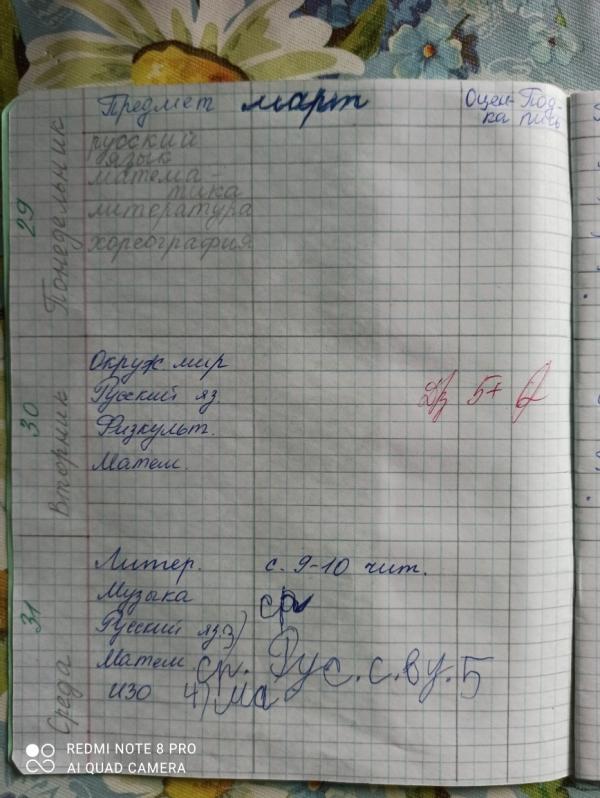 Предмет март Оцен- Под-
ка пись
29 Понедельник
русский
язык
матема-
тика
литература
хореография
30 Вторник
Окруж мир
Русский яз Д/з 5+
Физкульт.
Матем.
31 Среда
Литер. с. 9-10 чит.
Музыка ср
Русский яз 3)
Матем. ср. Рус. с. ву. 5
ИЗО 4) Ма
REDMI NOTE 8 PRO
AI QUAD CAMERA